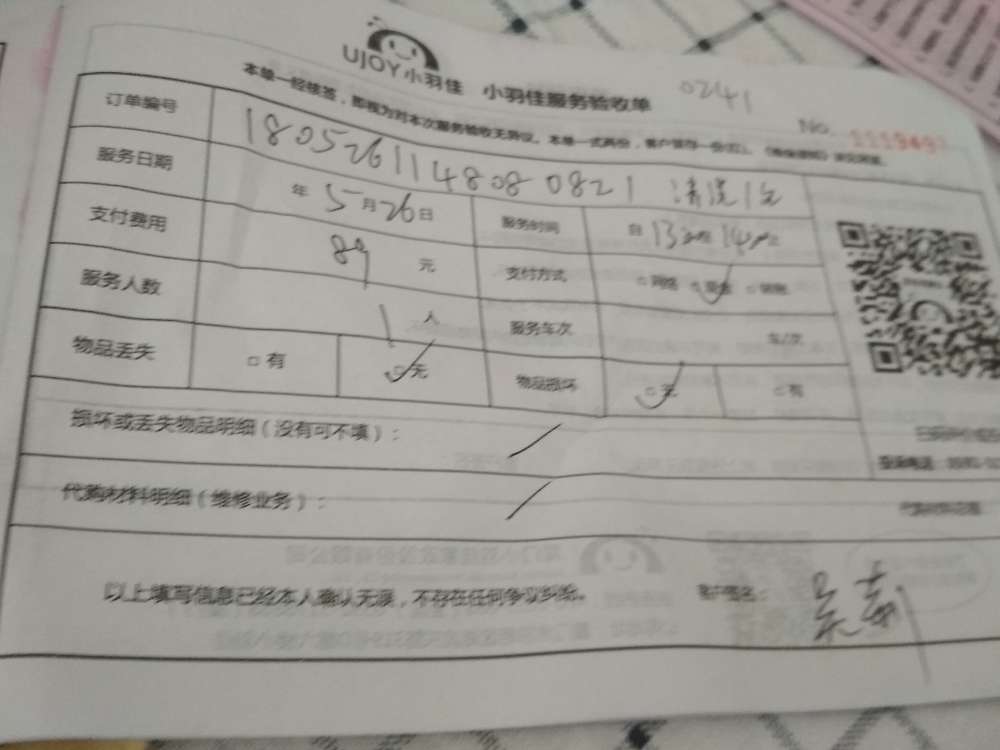 UJOY小羽佳 小羽佳服务验收单
02141
No.
本单一经核签，即视为对本次服务验收无异议。本单一式两份，客户留存一份
订单编号 180526114808 0821 清洗1台
服务日期 年 5月26日 服务时间 自 13 14
支付费用 89 元 支付方式 □网络 □现金 □转账
服务人数 1人 服务车次 车/次
物品丢失 □有 □无 物品损坏 □无 □有
损坏或丢失物品明细（没有可不填）： /
代购材料明细（维修业务）： /
以上填写信息已经本人确认无误，不存在任何争议纠纷。 客户签名：